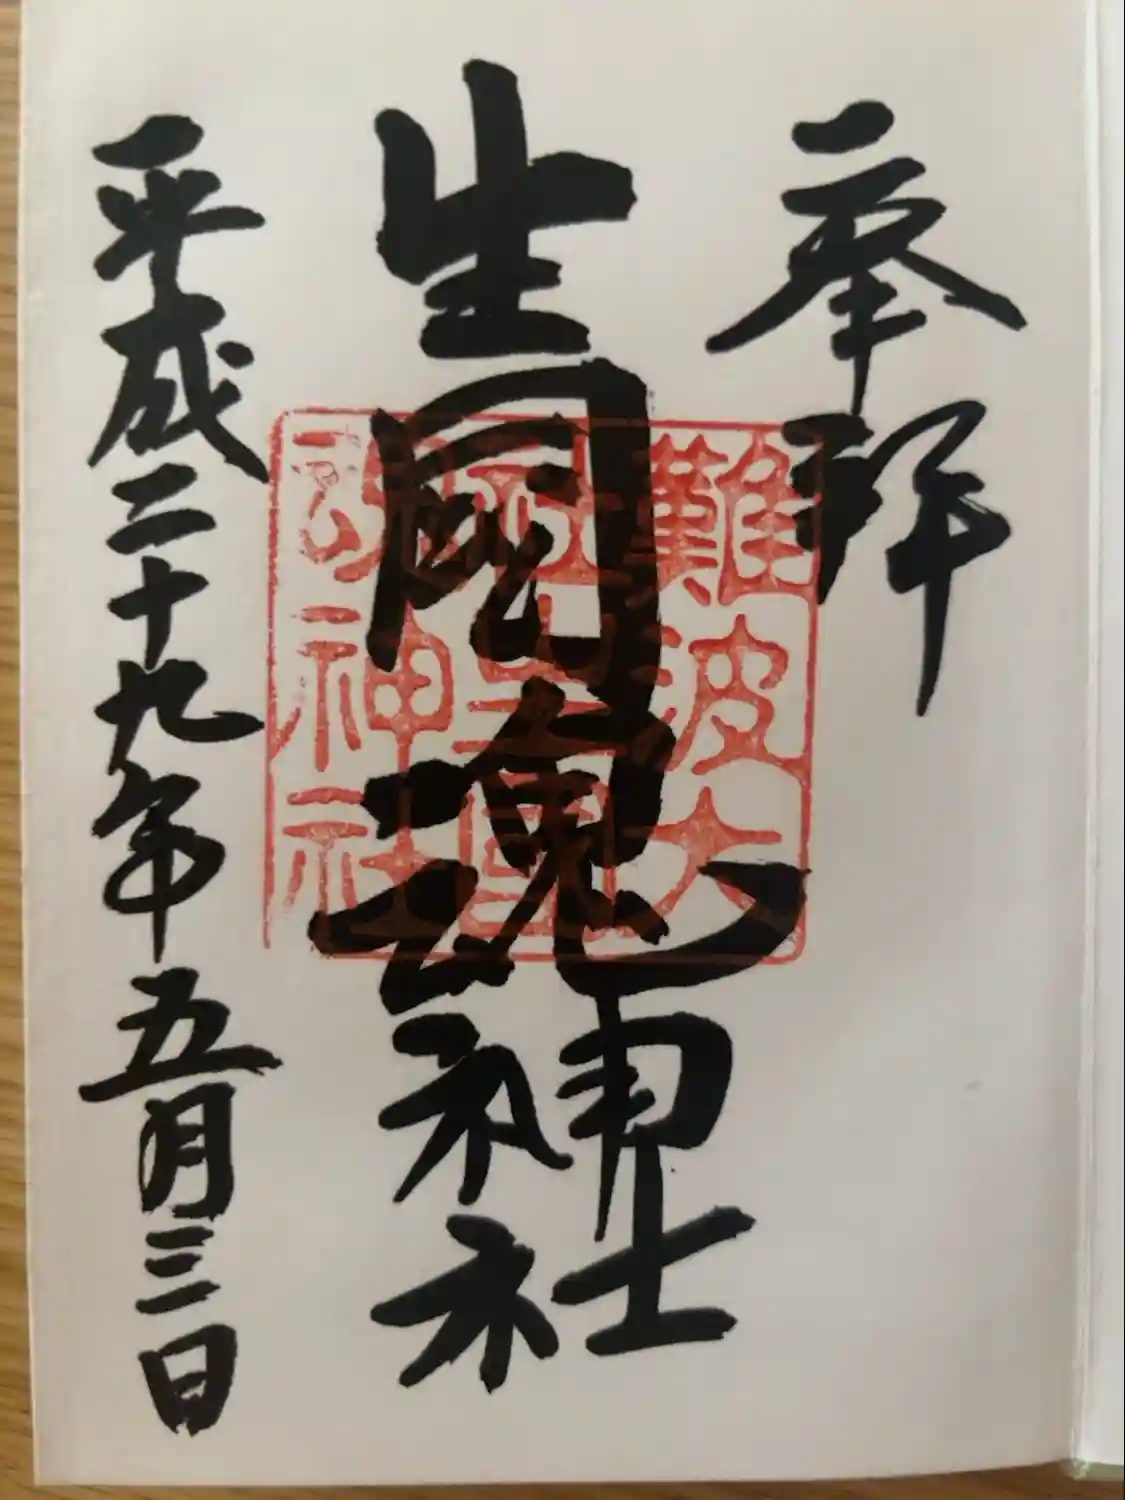 奉拝
生國魂神社
平成二十九年五月三日
難波大
社生國
魂神社